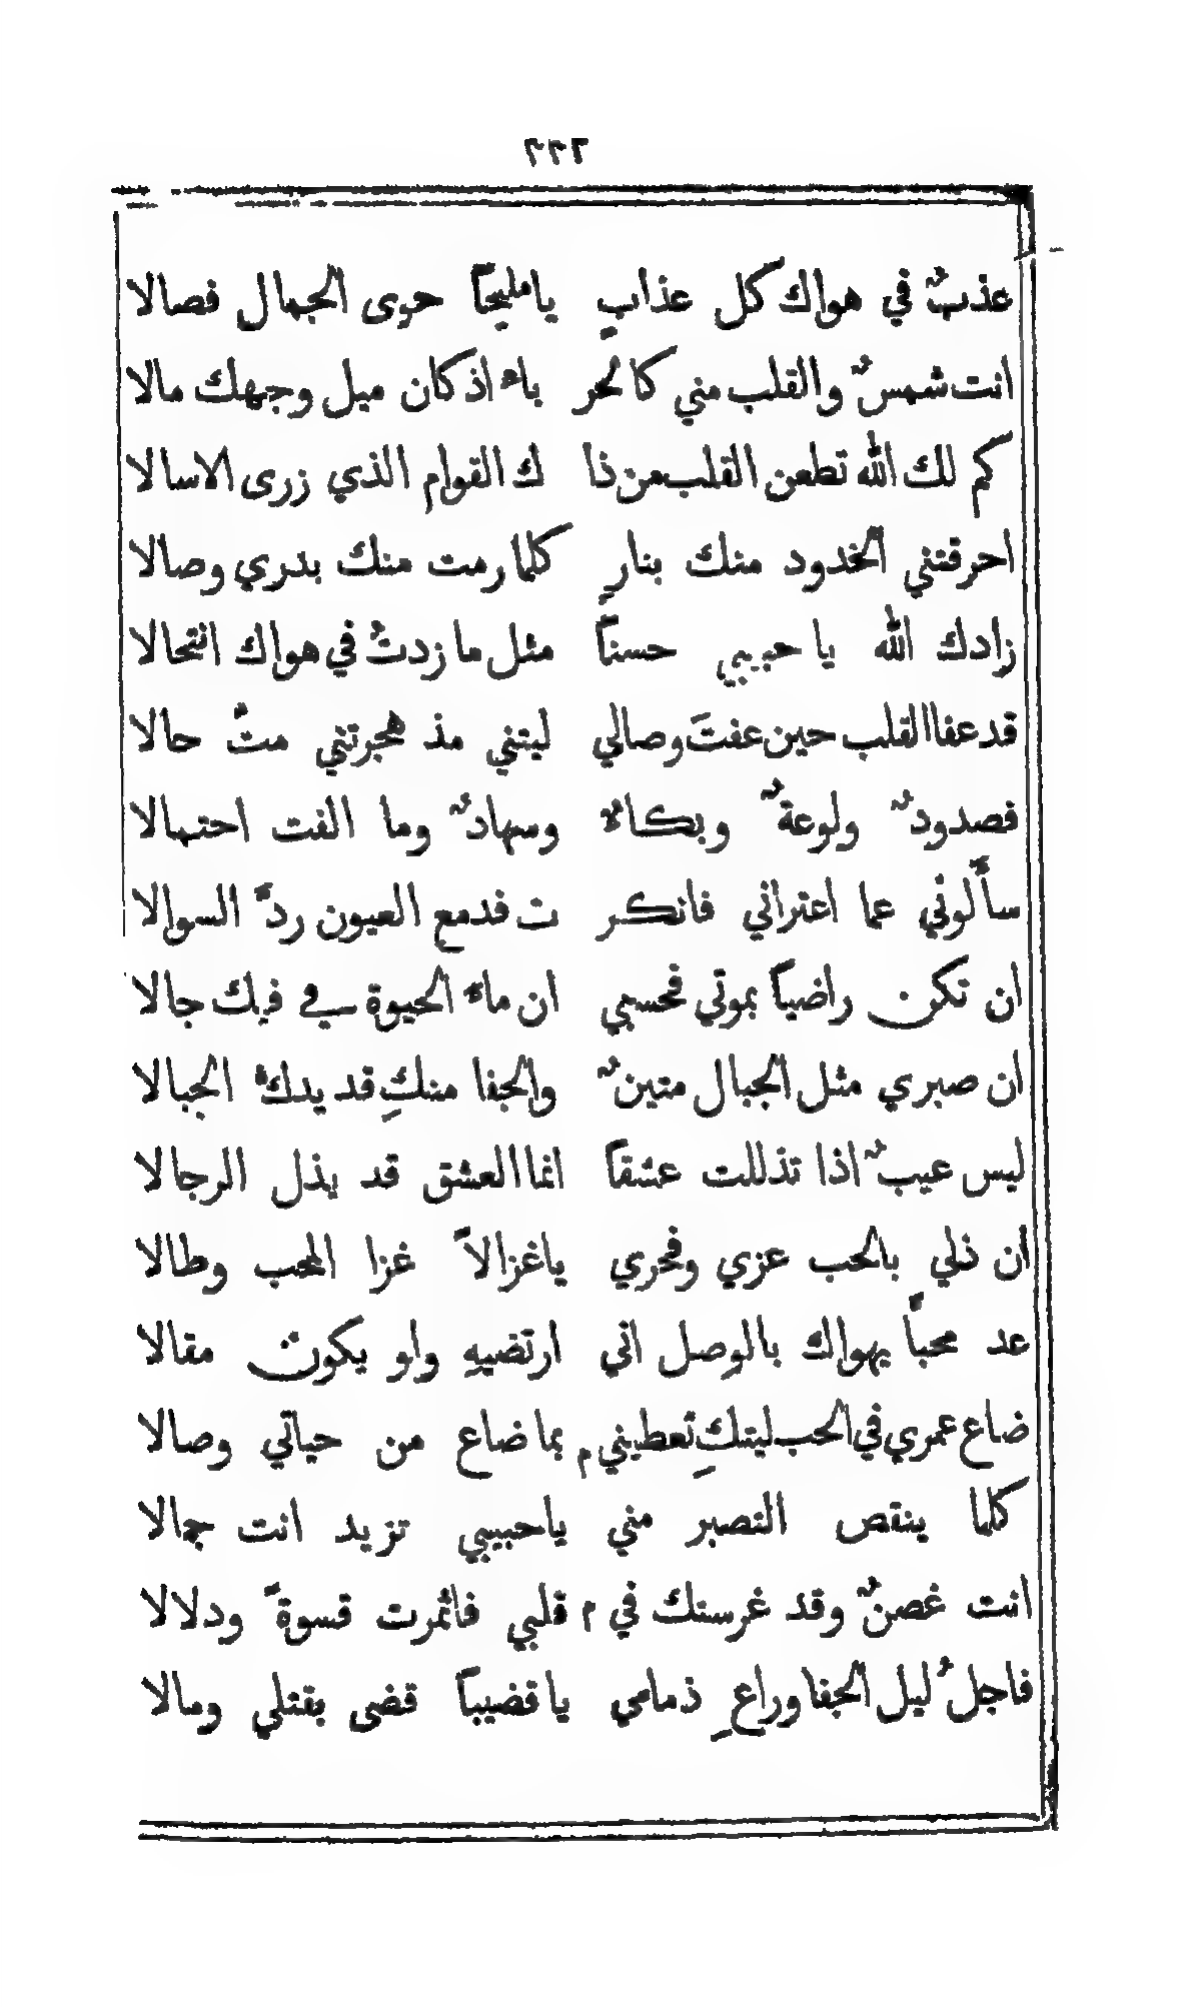 ٢٢٢
عذبٌ في هواك كل عذابٍ يا مليحاً حوى الجمال فصالا
انت شمسٌ والقلب مني كالحر باءِ اذ كان ميل وجهك مالا
كم لك الله تطعن القلب من ذا ك القوام الذي زرى الاسالا
احرقتني الخدود منك بنارٍ كلما رمت منك بدري وصالا
زادك الله يا حبيبي حسناً مثل ما زدتُ في هواك انتحالا
قد عفا القلب حين عفتَ وصالي ليتني مذ هجرتني متُّ حالا
فصدودٌ ولوعةٌ وبكاءٌ وسهادٌ وما الفت احتمالا
سأَلوني عما اعتراني فانكر ت فدمع العيون ردَّ السوالا
ان تكن راضياً بموتي فحسبي ان ماءَ الحيوة في فيك جالا
ان صبري مثل الجبال متينٌ والجفا منكِ قد يدكُّ الجبالا
ليس عيبٌ اذا تذللت عشقاً انما العشق قد يذل الرجالا
ان ذلي بالحب عزي وفخري يا غزالاً غزا المحب وطالا
عد محباً يهواك بالوصل اني ارتضيهِ ولو يكون مقالا
ضاع عمري في الحب ليتكِ تعطيني م بما ضاع من حياتي وصالا
كلما ينقص التصبر مني يا حبيبي تزيد انت جمالا
انت غصنٌ وقد غرستك في م قلبي فاثمرت قسوةً ودلالا
فاجلُ ليل الجفا وراعِ ذمامي يا قضيباً قضى بقتلي ومالا